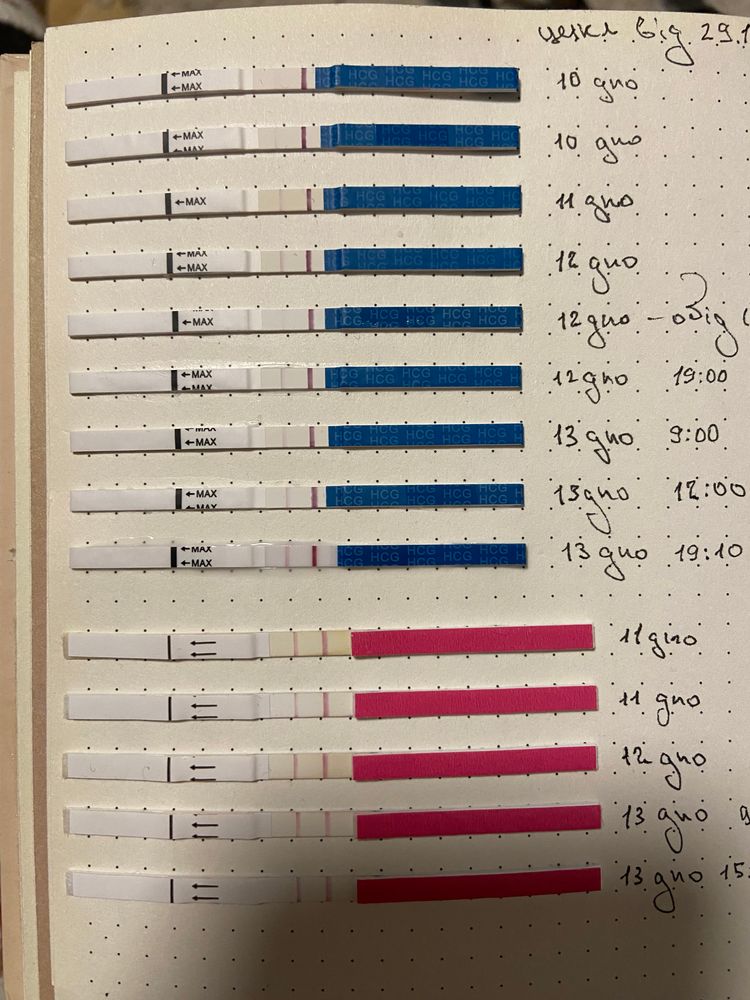 цикл від 29.1
←MAX ←MAX HCG HCG HCG HCG 10 дпо
←MAX HCG HCG HCG HCG 10 дпо
←MAX HCG HCG HCG HCG 11 дпо
←MAX ←MAX HCG HCG HCG HCG 12 дпо
←MAX HCG HCG HCG HCG 12 дпо – обід
←MAX HCG HCG HCG HCG 12 дпо 19:00
←MAX HCG HCG HCG HCG 13 дпо 9:00
←MAX HCG HCG HCG HCG 13 дпо 12:00
←MAX ←MAX HCG HCG HCG HCG 13 дпо 19:10
11 дпо
11 дпо
12 дпо
13 дпо 9
13 дпо 15: